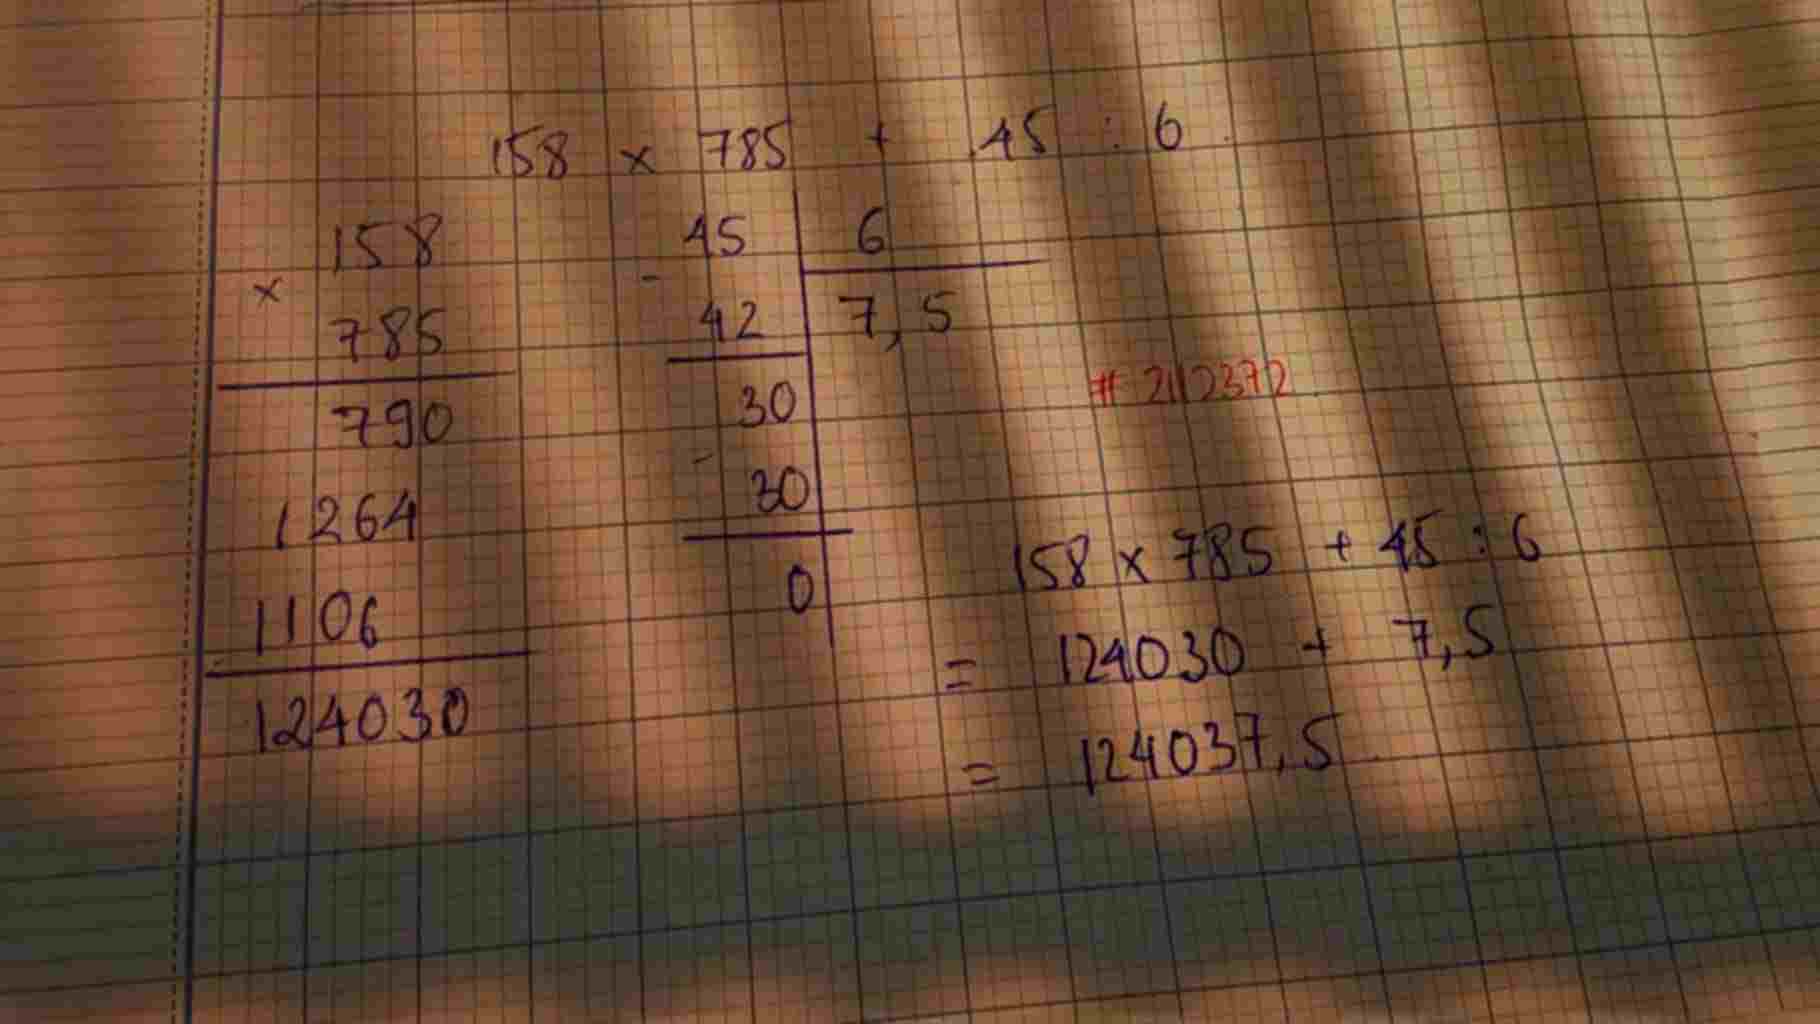 158 x 785 + 45 : 6
158
x
785
790
1264
1106
124030
45 6
-
42 7,5
30
-
30
0
# 2112372
158 x 785 + 45 : 6
= 124030 + 7,5
= 124037,5